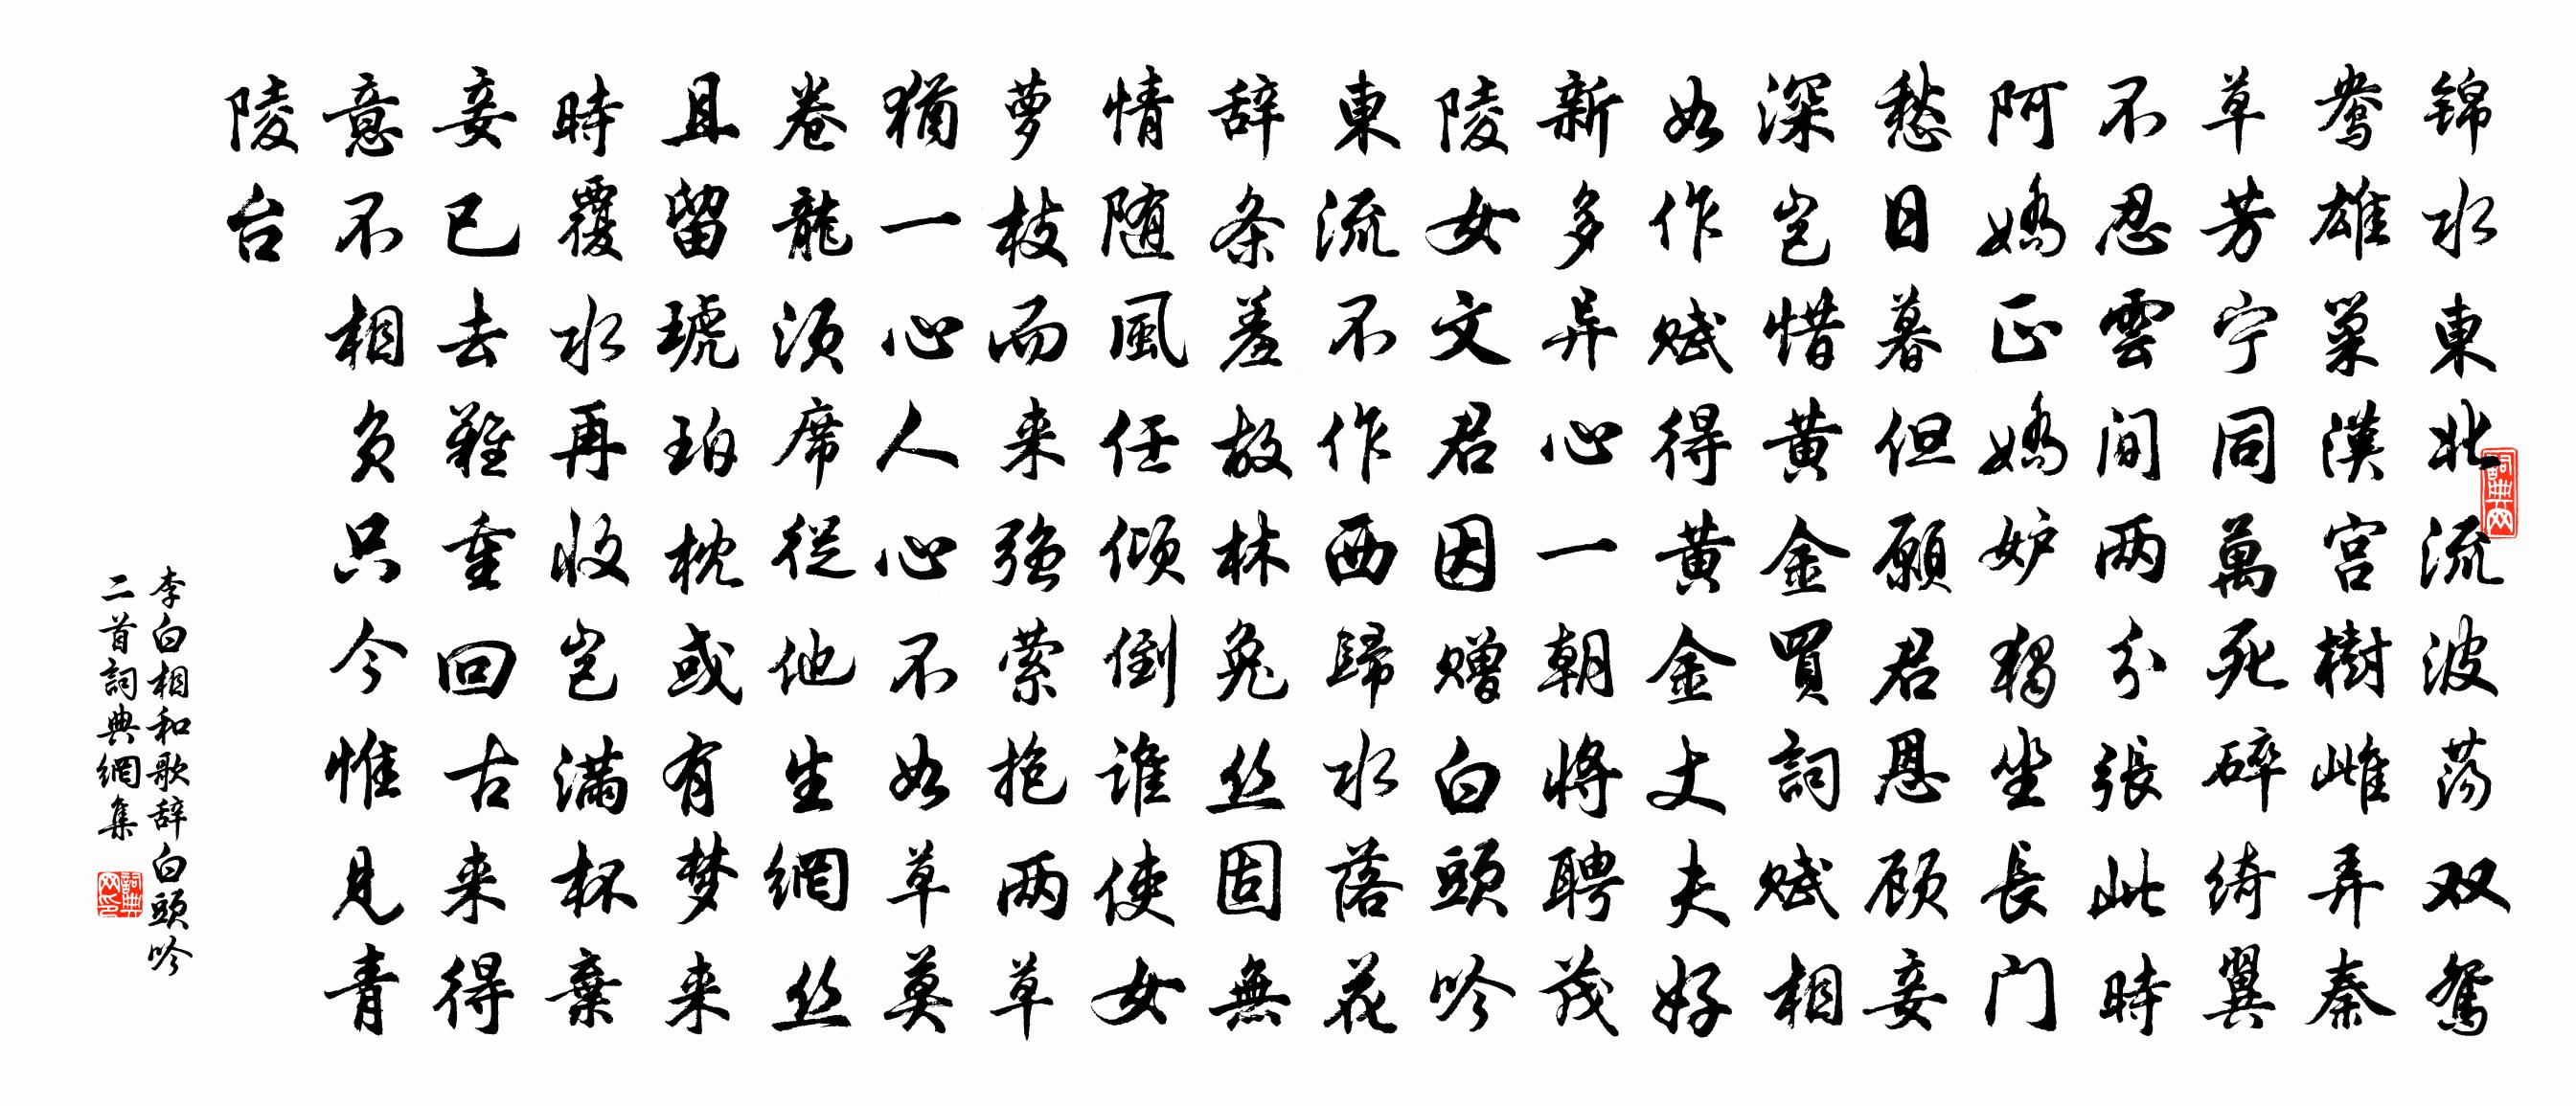 锦水東北流波荡双鸳
鸯雄巢漢宫樹雌弄秦
草芳宁同萬死碎绮翼
不忍雲间两分張此時
阿嬌正嬌妒独坐長门
愁日暮但願君恩顾妾
深岂惜黄金買詞赋相
如作赋得黄金丈夫好
新多异心一朝将聘茂
陵女文君因赠白頭吟
東流不作西歸水落花
辞条羞故林兔丝固無
情随風任倾倒谁使女
萝枝而来强萦抱两草
猶一心人心不如草莫
卷龍须席從他生網丝
且留琥珀枕或有梦来
時覆水再收岂满杯棄
妾已去難重回古来得
意不相负只今惟见青
陵台
李白相和歌辞白頭吟
二首詞典網集
詞典网
詞典网印